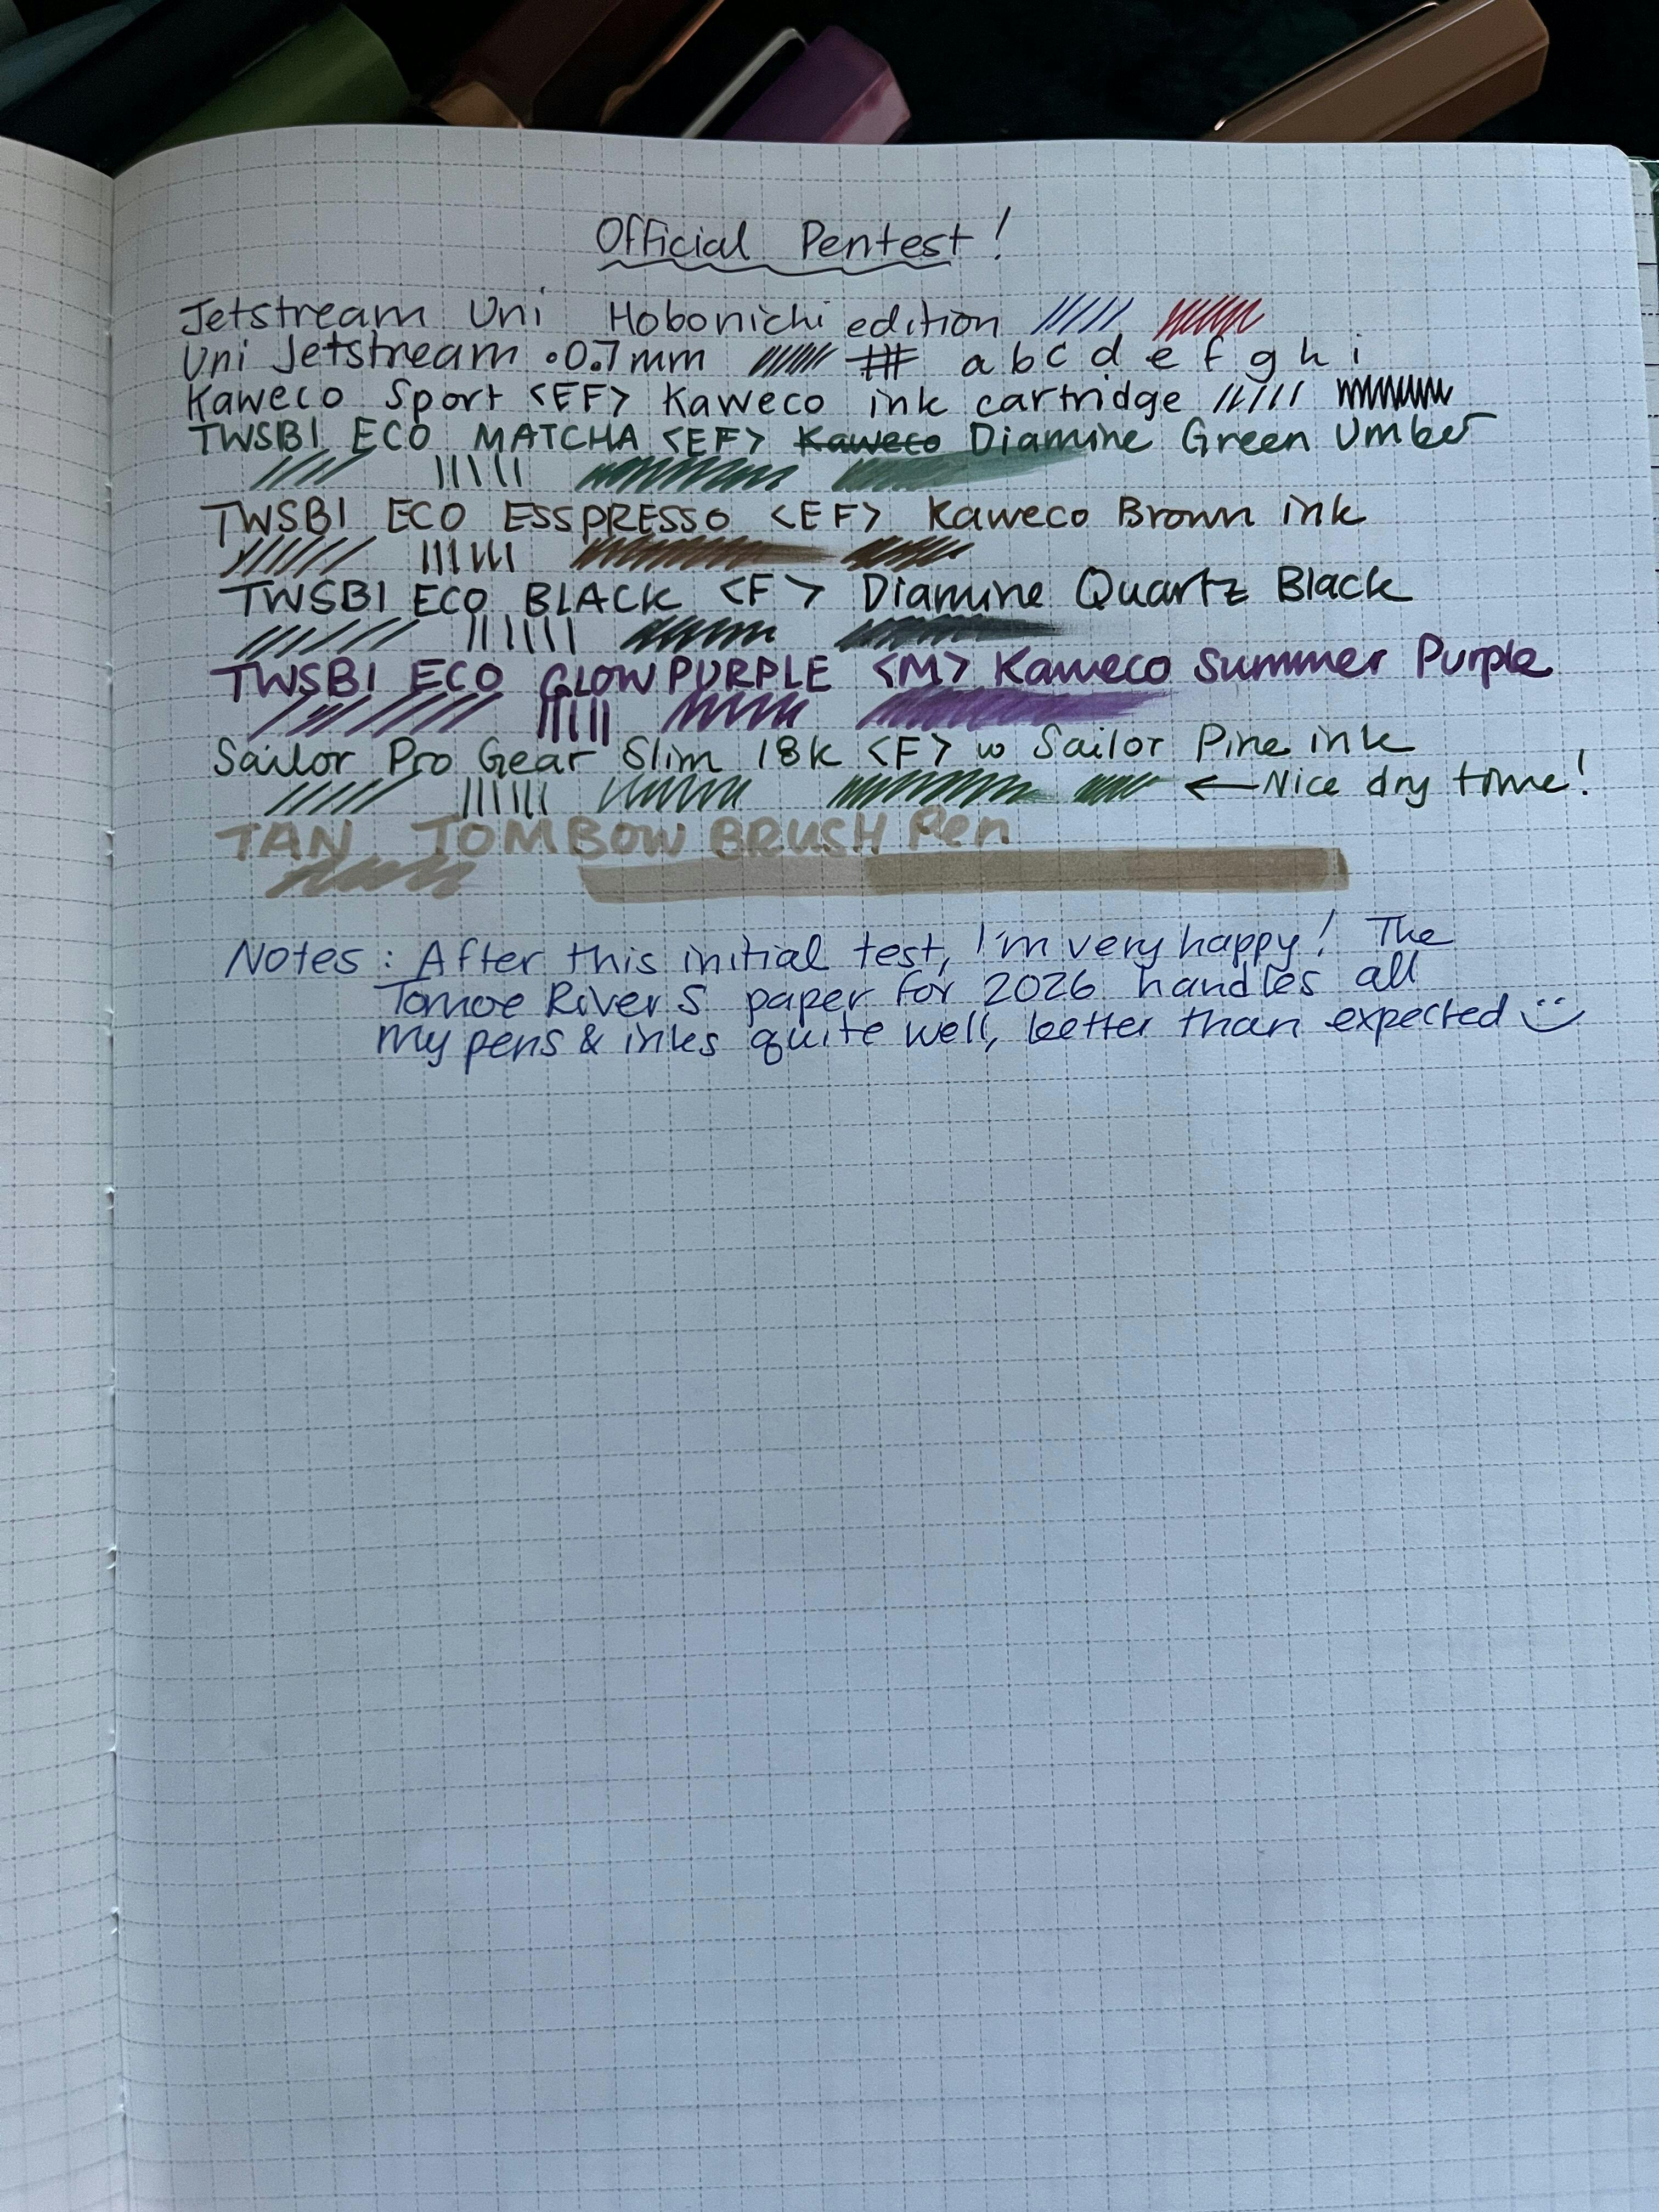 Official Pentest!
Jetstream Uni Hobonichi edition
Uni Jetstream •0.7mm a b c d e f g h i
Kaweco Sport <EF> Kaweco ink cartridge
TWSBI ECO MATCHA <EF> Kaweco Diamine Green Umber
TWSBI ECO ESSPRESSO <EF> Kaweco Brown ink
TWSBI ECO BLACK <F> Diamine Quartz Black
TWSBI ECO GLOW PURPLE <M> Kaweco Summer Purple
Sailor Pro Gear Slim 18k <F> w Sailor Pine ink
←Nice dry time!
TAN TOMBOW BRUSH Pen
Notes: After this initial test, I'm very happy! The
Tomoe River S paper for 2026 handles all
my pens & inks quite well, better than expected